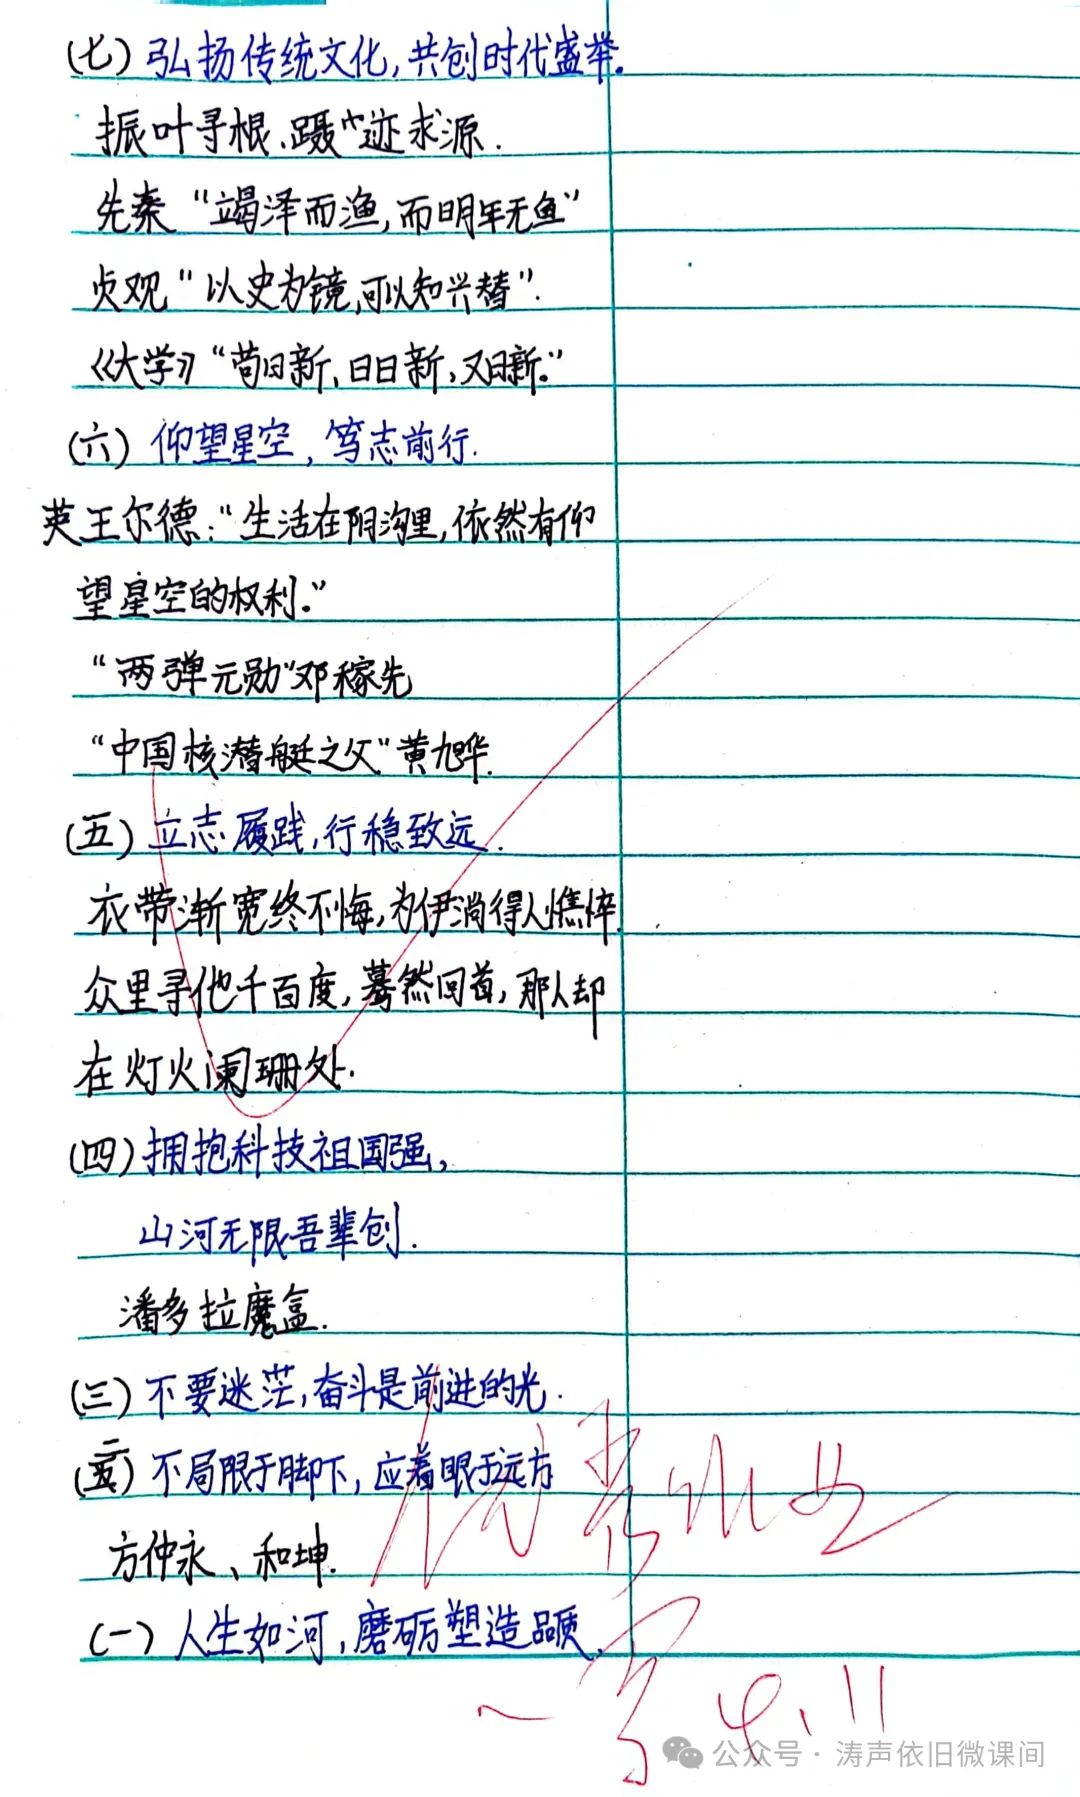 (七) 弘扬传统文化,共创时代盛举.
振叶寻根、蹑迹求源.
先秦“竭泽而渔,而明年无鱼”
贞观“以史为镜,可以知兴替”.
《大学》“苟日新、日日新,又日新.”
(六) 仰望星空,笃志前行.
英王尔德:“生活在阴沟里,依然有仰
望星空的权利.”
“两弹元勋”邓稼先
“中国核潜艇之父”黄旭华.
(五) 立志履践,行稳致远.
衣带渐宽终不悔,为伊消得人憔悴.
众里寻他千百度,蓦然回首,那人却
在灯火阑珊处.
(四) 拥抱科技祖国强,
山河无限吾辈创.
潘多拉魔盒.
(三) 不要迷茫,奋斗是前进的光.
(二) 不局限于脚下,应着眼于远方
方仲永、和坤.
(一) 人生如河,磨砺塑造品质.
公众号·涛声依旧微课间